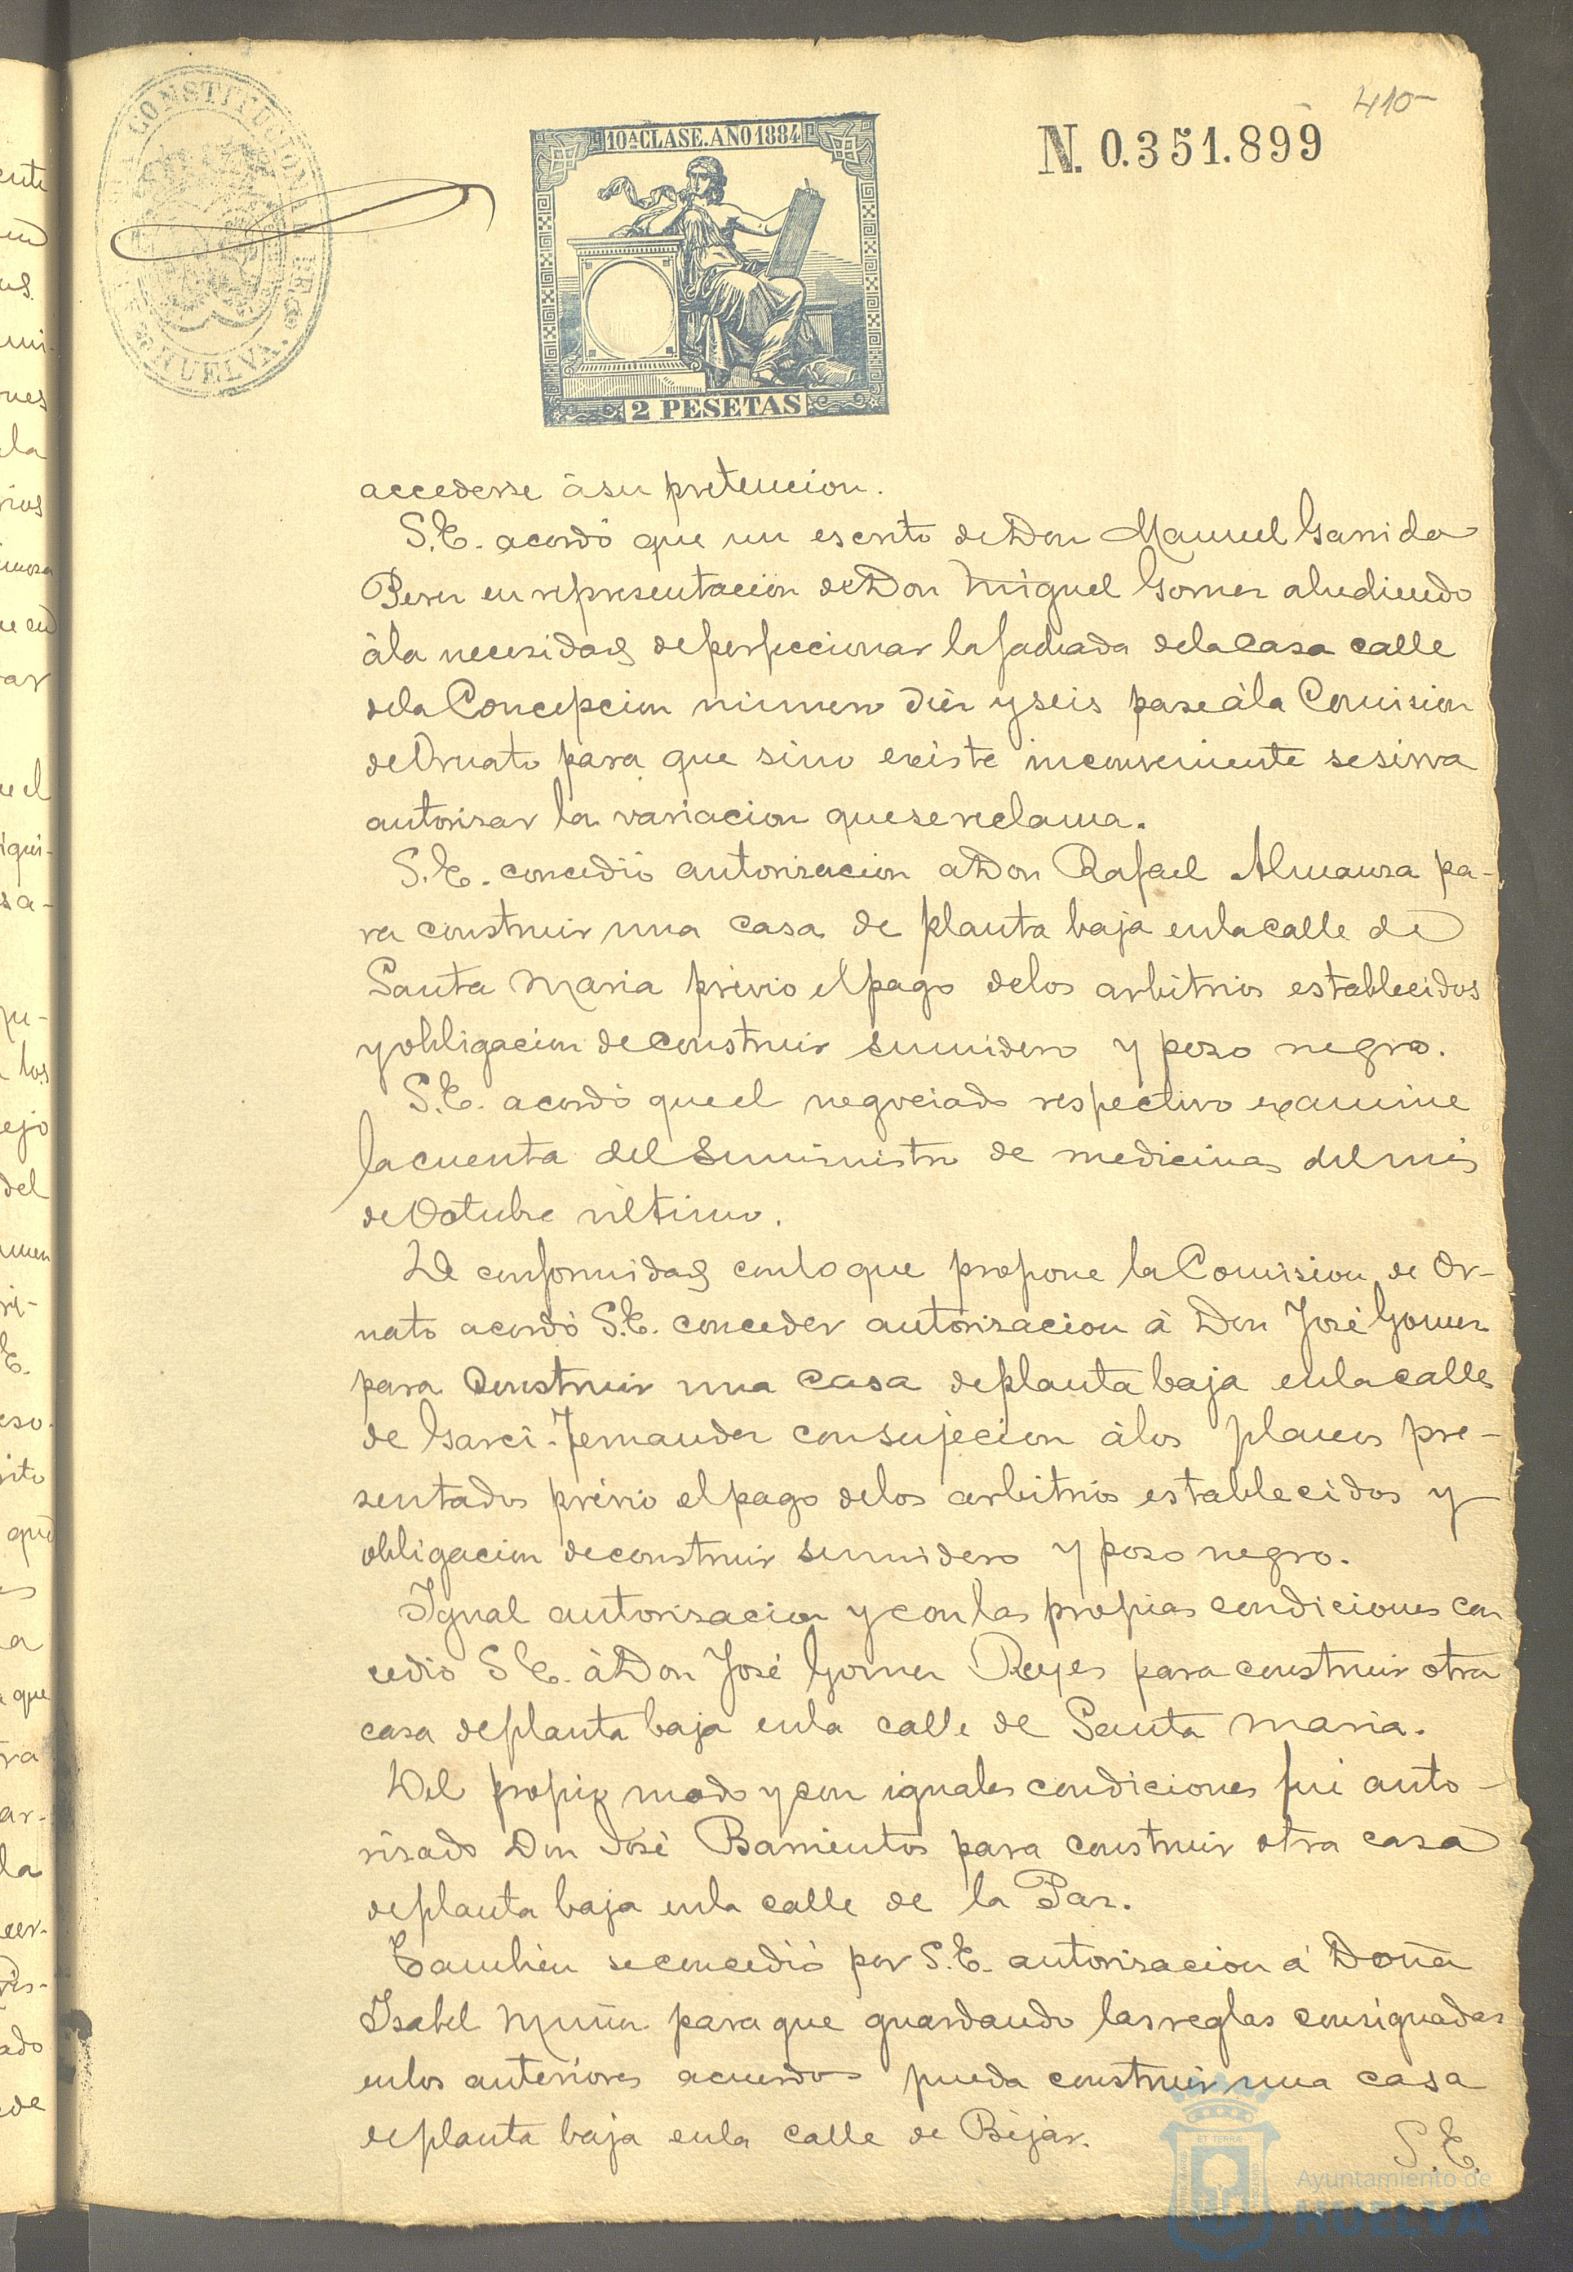 410
CONSTITUCION
HUELVA.
10ª CLASE. AÑO 1884
N. 0.351.899
2 PESETAS
accederse à su pretencion.
S.E. acordó que un escrito de Don Manuel Garrido
Perez en representacion de Don Miguel Gomez aludiendo
à la necesidad de perfeccionar la fachada de la Casa calle
de la Concepcion número diez y seis pase à la Comision
de Ornato para que sino existe inconveniente se sirva
autorizar la variacion que se reclama.
S.E. concedió autorizacion a Don Rafael Almansa pa-
ra construir una casa de planta baja en la calle de
Santa Maria prévio el pago de los arbitrios establecidos
y obligacion de construir sumidero y pozo negro.
S.E. acordó que el negociado respectivo examine
la cuenta del suministro de medicinas del mes
de Octubre último.
De conformidad con lo que propone la Comision de Or-
nato acordó S.E. conceder autorizacion à Don José Gomez
para construir una casa de planta baja en la calle
de Garci-Fernandez con sujecion à los planos pre-
sentados prévio el pago de los arbitrios establecidos y
obligacion de construir sumidero y pozo negro.
Igual autorizacion y con las propias condiciones con
cedió S.E. à Don José Gomez Reyes para construir otra
casa de planta baja en la calle de Santa Maria.
Del propio modo y con iguales condiciones fué auto-
rizado Don José Barrientos para construir otra casa
de planta baja en la calle de la Paz.
Tambien se concedió por S.E. autorizacion á Doña
Isabel Muñiz para que guardando las reglas consignadas
en los anteriores acuerdos pueda construir una casa
de planta baja en la calle de Béjar.
S.E.
Ayuntamiento de
HUELVA